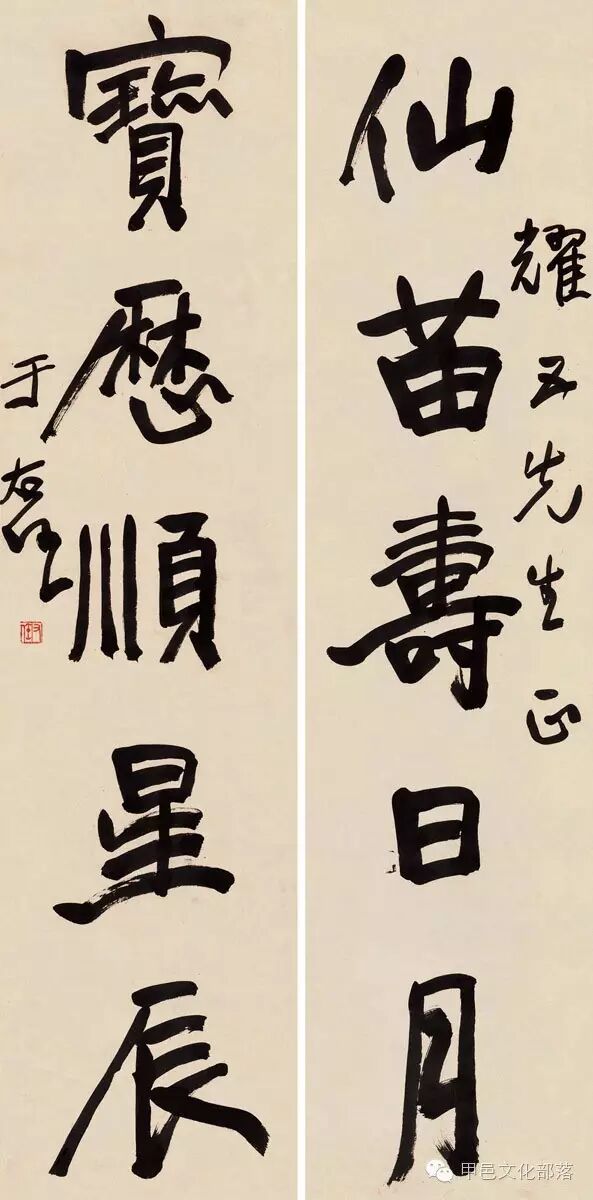 耀五先生正
仙苗壽日月
寶歷順星辰
于右任
右任
甲邑文化部落